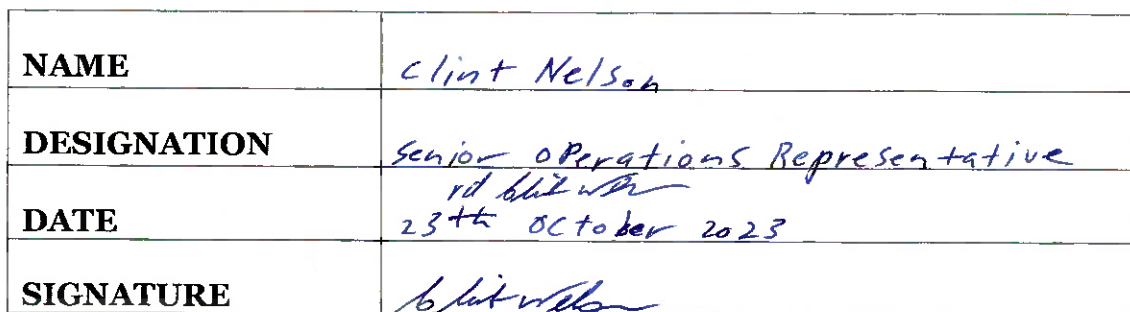 NAME Clint Nelson
DESIGNATION Senior Operations Representative
rd
DATE 23th October 2023
SIGNATURE